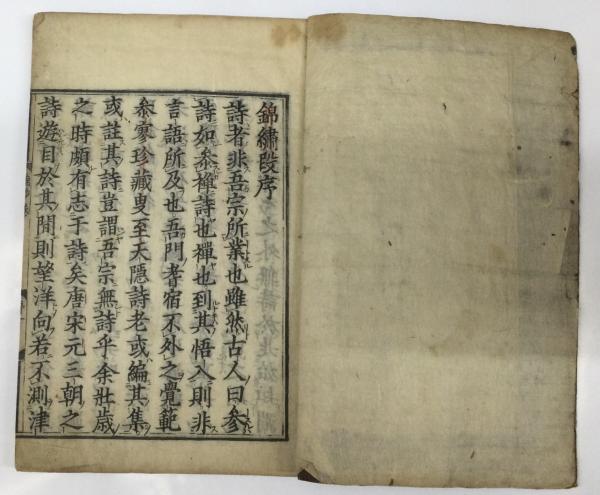 錦繡段序
詩者非吾宗所業也雖然古人曰參
詩如參禪詩也禪也到其悟入則非
言語所及也吾門耆宿不外之覺範
參寥珍藏叟至天隱詩老或編其集
或註其詩豈謂吾宗無詩乎余壯歲
之時頗有志于詩矣唐宋元三朝之
詩遊目於其間則望洋向若不測津